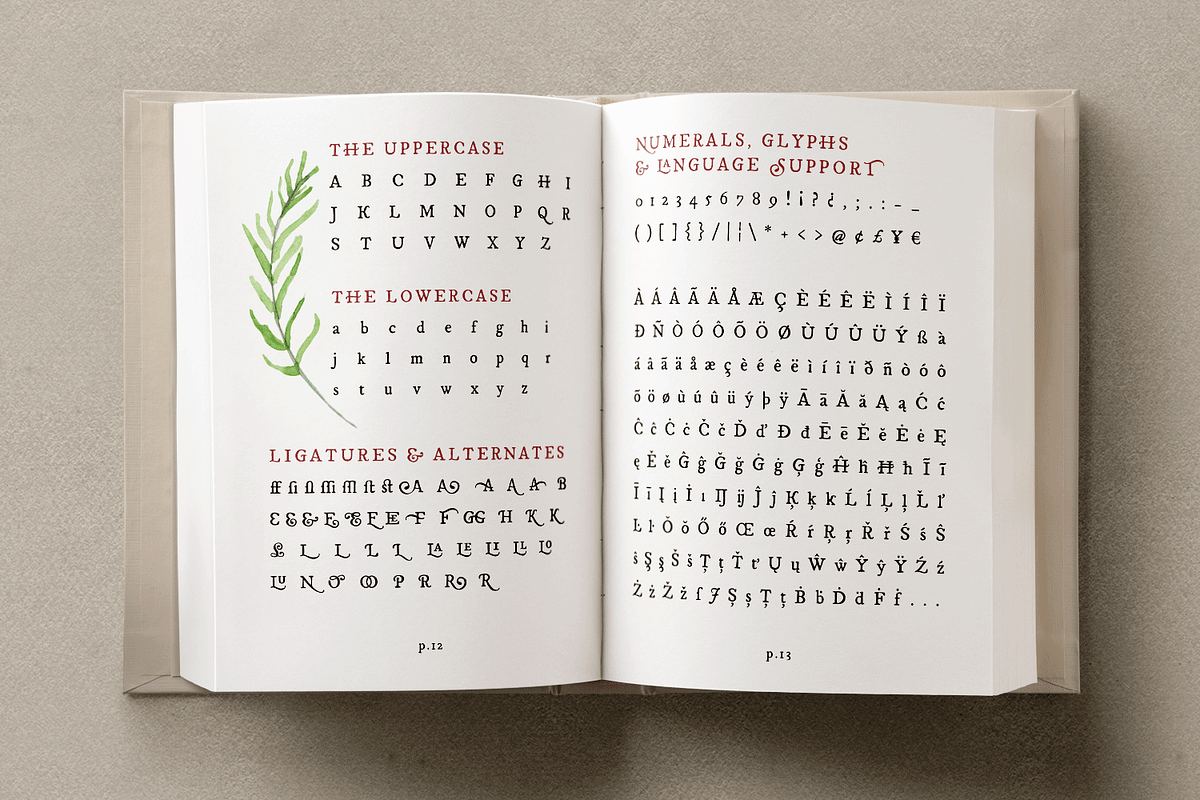 THE UPPERCASE
A B C D E F G H I
J K L M N O P Q R
S T U V W X Y Z
THE LOWERCASE
a b c d e f g h i
j k l m n o p q r
s t u v w x y z
LIGATURES & ALTERNATES
A A A A A B
E & & E E E E F F GG H K K
L L L L LA LE LI LL LO
LU N O OO P R R R
p.12
NUMERALS, GLYPHS
& LANGUAGE SUPPORT
0 1 2 3 4 5 6 7 8 9 ! ¡ ? ¿ , ; . : - – _
( ) [ ] { } / | ¦ \ * + < > @ ¢ £ ¥ €
À Á Â Ã Ä Å Æ Ç È É Ê Ë Ì Í Î Ï
Ð Ñ Ò Ó Ô Õ Ö Ø Ù Ú Û Ü Ý ß à
á â ã ä å æ ç è é ê ë ì í î ï ð ñ ò ó ô
õ ö ø ù ú û ü ý þ ÿ Ā ā Ă ă Ą ą Ć ć
Ĉ ĉ Ċ ċ Č č Ď ď Đ đ Ē ē Ĕ ĕ Ė ė Ę
ę Ě ě Ĝ ĝ Ğ ğ Ġ ġ Ģ ģ Ĥ ĥ Ħ ħ Ĩ ĩ
Ī ī Į į İ ı Ĳ ĳ Ĵ ĵ Ķ ķ ĸ Ĺ ĺ Ļ ļ Ľ ľ
Ŀ ŀ Ǒ ǒ Ő ő Œ œ Ŕ ŕ Ŗ ŗ Ř ř Ś ś Ŝ
ŝ Ş ş Š š Ţ ţ Ť ť Ų ų Ŵ ŵ Ŷ ŷ Ÿ Ź ź
Ż ż Ž ž ſ Ș ș Ț ț Ḃ ḃ Ḋ ḋ Ḟ ḟ . . .
p.13